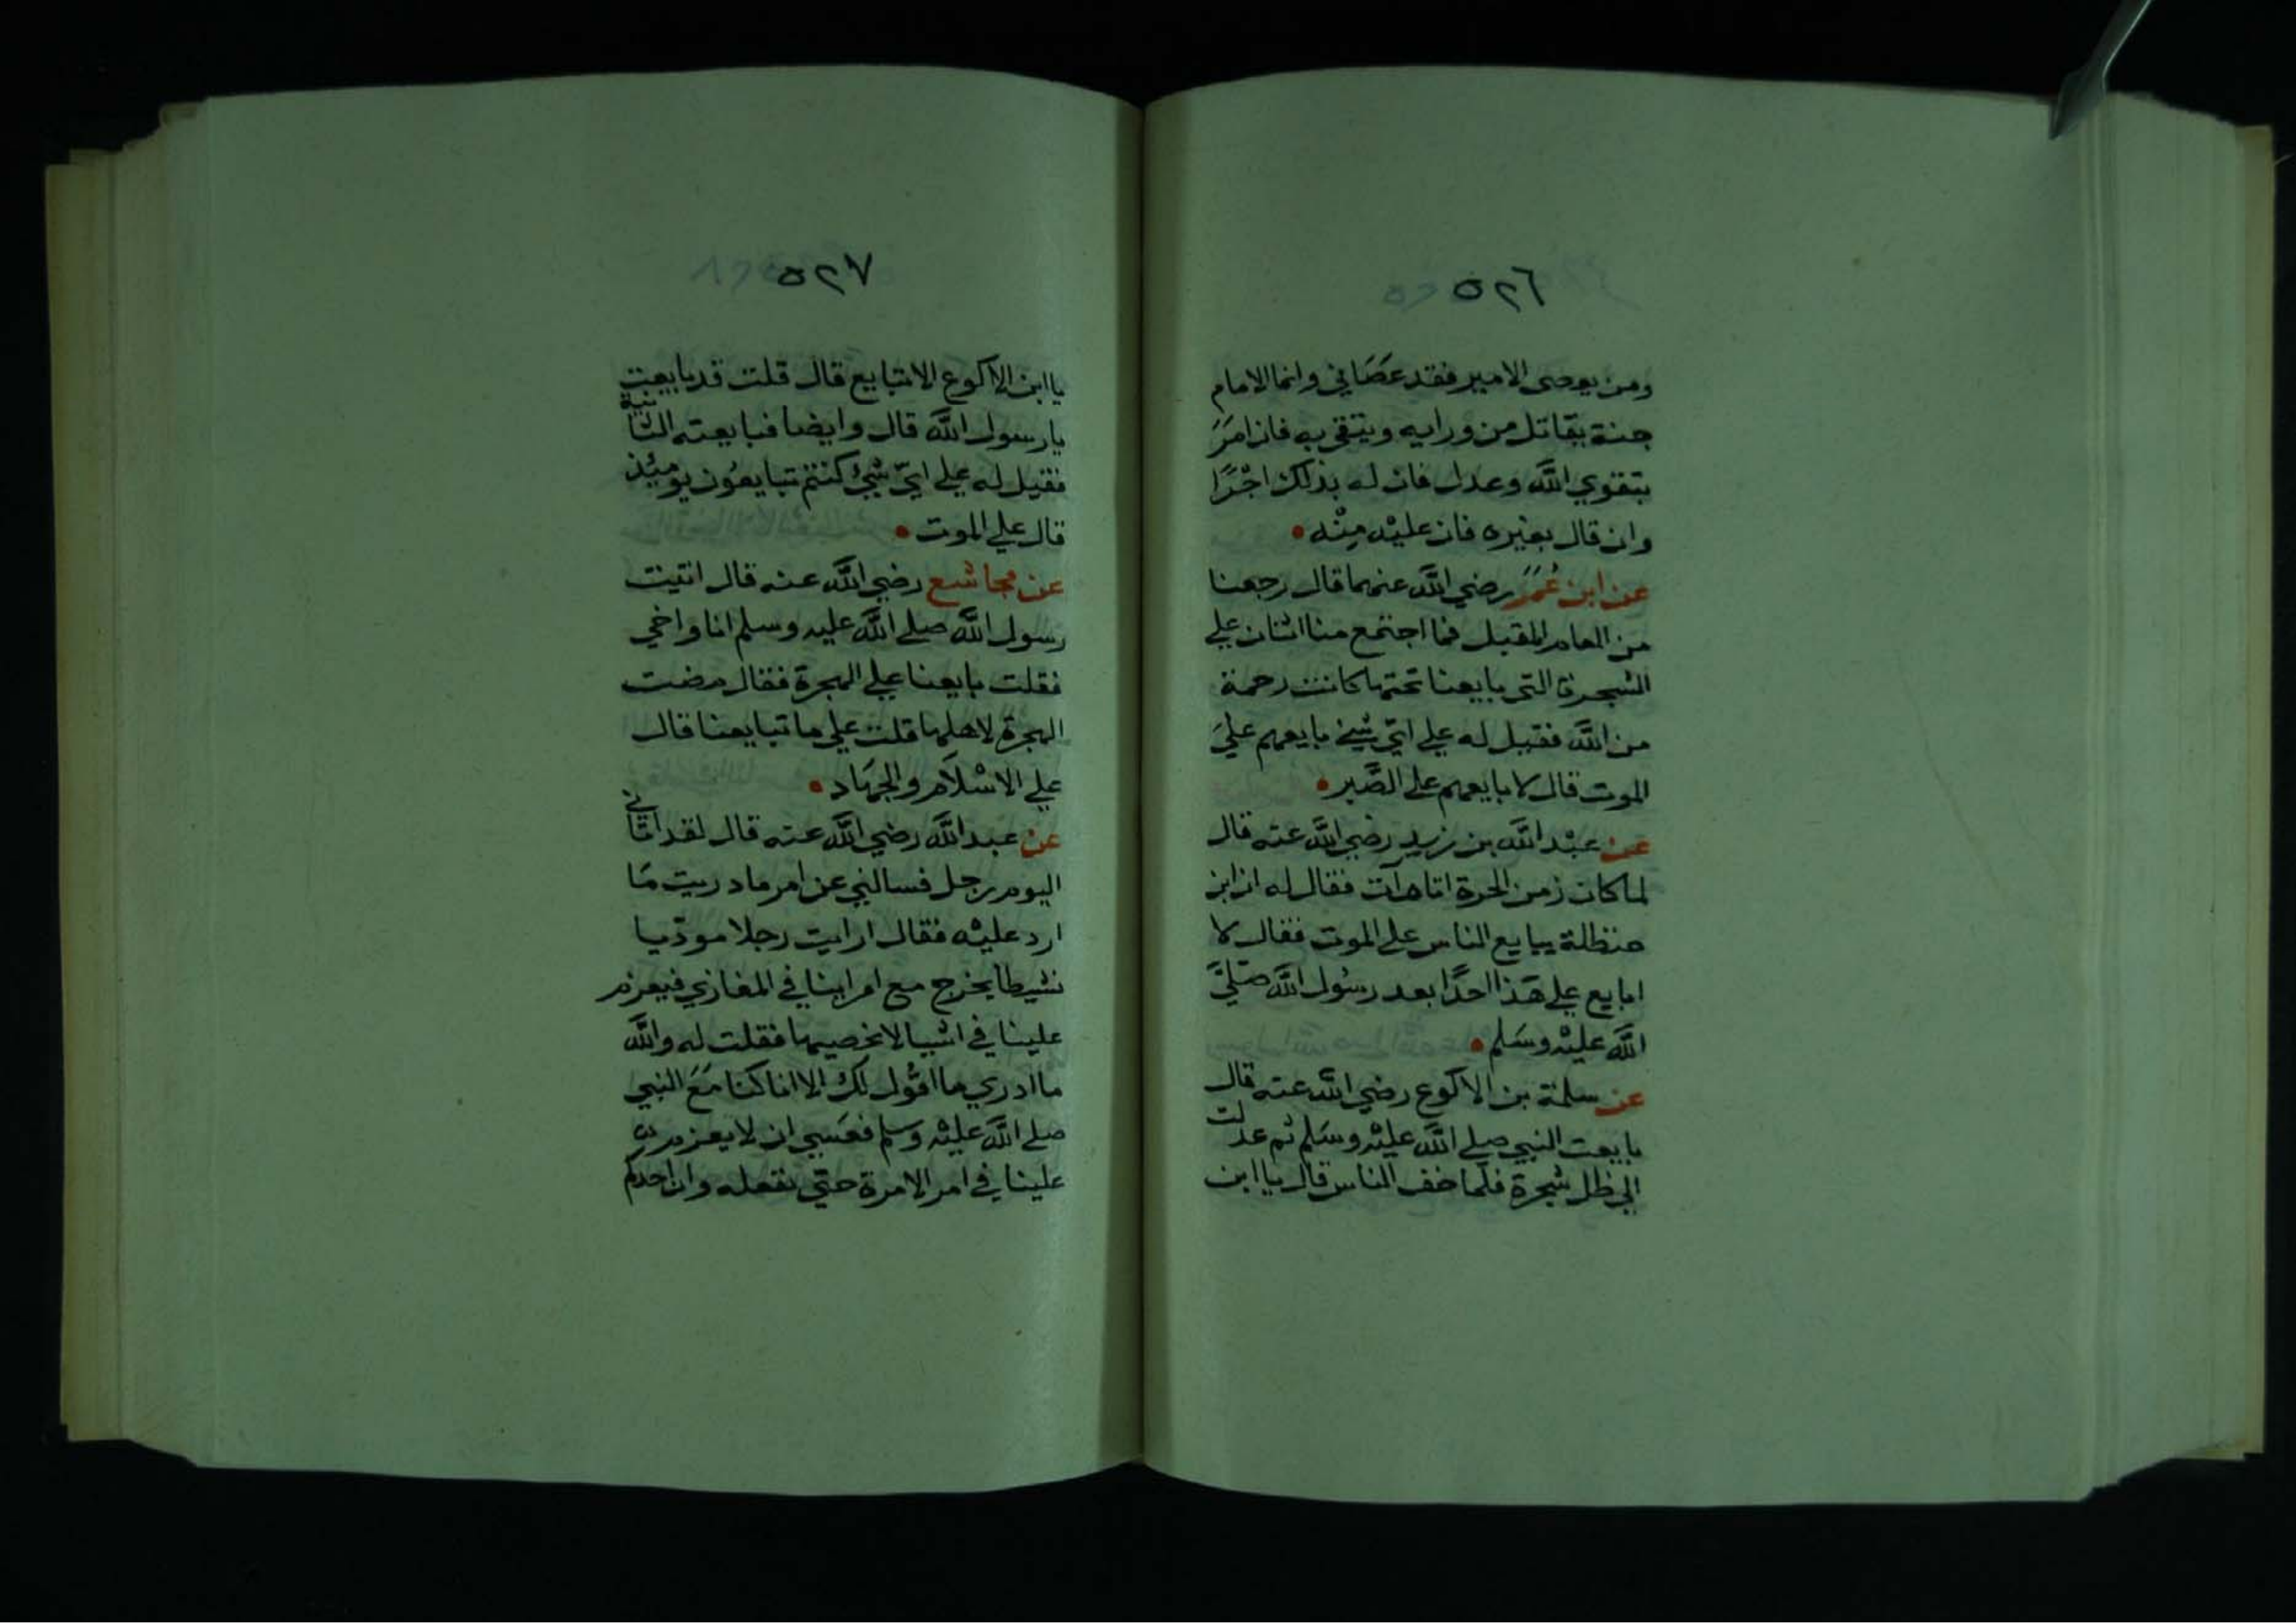 ٥٢٦
ومن يعصى الامير فقد عَصَاني وانما الامام
جنة يقاتل من ورايه ويتقي به فان امَرَ
بتقوي اللَّه وعدل فان له بذلك اجْرًا
وان قال بغيره فان عليْه مِنْه
عن ابن عُمَرَ رضي اللَّه عنهما قال رجعنا
من العام المقبل فما اجتمع منا اثنان علي
الشجرة التي بايعنا تحتها كانت رحمة
من اللَّه فقيل له علي ايّ شيئ بايعهم عليَ
الموت قال لا بايعهم علي الصَّبر
عن عبْد اللَّه بن زيد رضي اللَّه عنه قال
لما كان زمن الحرة اتاه آت فقال له ان ابن
حنظلة يبايع الناس علي الموت فقال لا
ابايع علي هَذا احدًا بعد رسُول اللَّه صَليَّ
اللَّه عليْه وسَلم
عن سلمة بن الاكوع رضي اللَّه عنه قال
بايعت النبي صلي اللَّه عليْه وسَلم ثم عدلت
الي ظل شجرة فلما خف الناس قال يا ابن
٥٢٧
يا ابن الاكوع الا تبايع قال قلت قد بايعت
يا رسول اللَّه قال وايضا فبايعته الثانية
فقيل له علي ايّ شيئ كنتم تبايعُون يومئذ
قال علي الموت
عن مجاشع رضي اللَّه عنه قال اتيت
رسول اللَّه صلي اللَّه عليه وسلم انا واخي
فقلت بايعنا علي الهجرة فقال مضت
الهجرة لاهلها قلت علي ما تبايعنا قال
علي الاسْلَام والجهَاد
عن عبد اللَّه رضي اللَّه عنه قال لقد اتاني
اليوم رجل فسالني عن امر ما دريت مَا
ارد عليْه فقال ارايت رجلا موديا
نشيطا يخرج مع امراينا في المغازي فيعزم
علينا في اشيا لا نحصيها فقلت له واللَّه
ما ادري ما اقُول لك الا انا كنا مَعَ النبي
صلي اللَّه عليْه وسلم فعَسي ان لا يعزم
علينا في امر الا مرة حتي نفعله وان احدكم